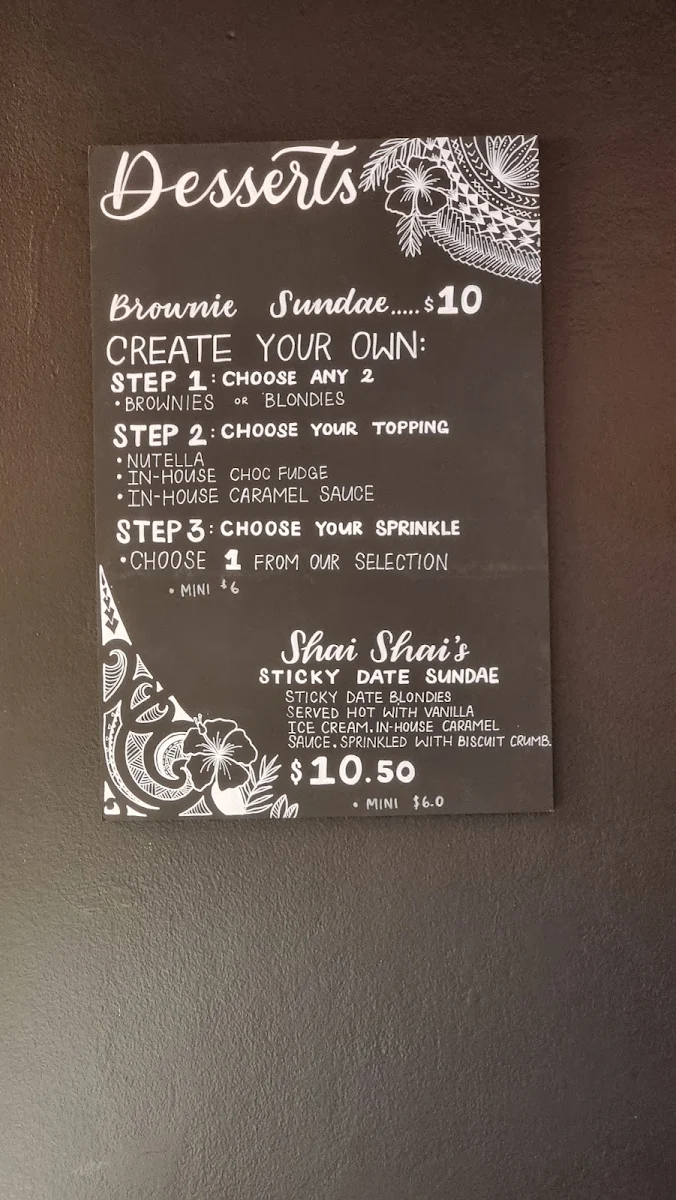 Desserts
Brownie Sundae.....$10
CREATE YOUR OWN:
STEP 1: CHOOSE ANY 2
• BROWNIES OR BLONDIES
STEP 2: CHOOSE YOUR TOPPING
• NUTELLA
• IN-HOUSE CHOC FUDGE
• IN-HOUSE CARAMEL SAUCE
STEP 3: CHOOSE YOUR SPRINKLE
• CHOOSE 1 FROM OUR SELECTION
• MINI $6
Shai Shai's
STICKY DATE SUNDAE
STICKY DATE BLONDIES
SERVED HOT WITH VANILLA
ICE CREAM. IN-HOUSE CARAMEL
SAUCE. SPRINKLED WITH BISCUIT CRUMB.
$10.50
• MINI $6.0